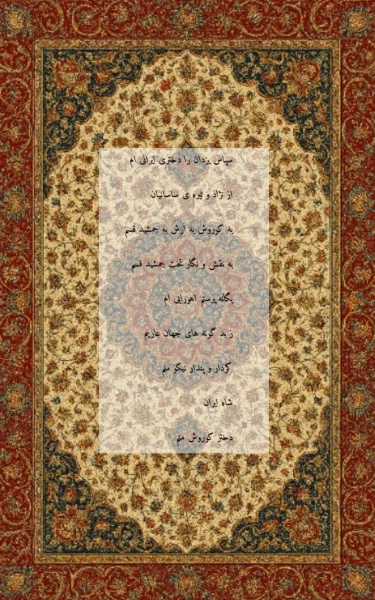 سپاس یزدان را دختری ایرانی ام
از نژاد و تیره ی ساسانیان
به کوروش به آرش به جمشید قسم
به نقش و نگار تخت جمشید قسم
یگانه پرستم اهورایی ام
ز بد گونه های جهان عاریم
کردار و پندار نیکو منم
شاه ایران
دختر کوروش منم